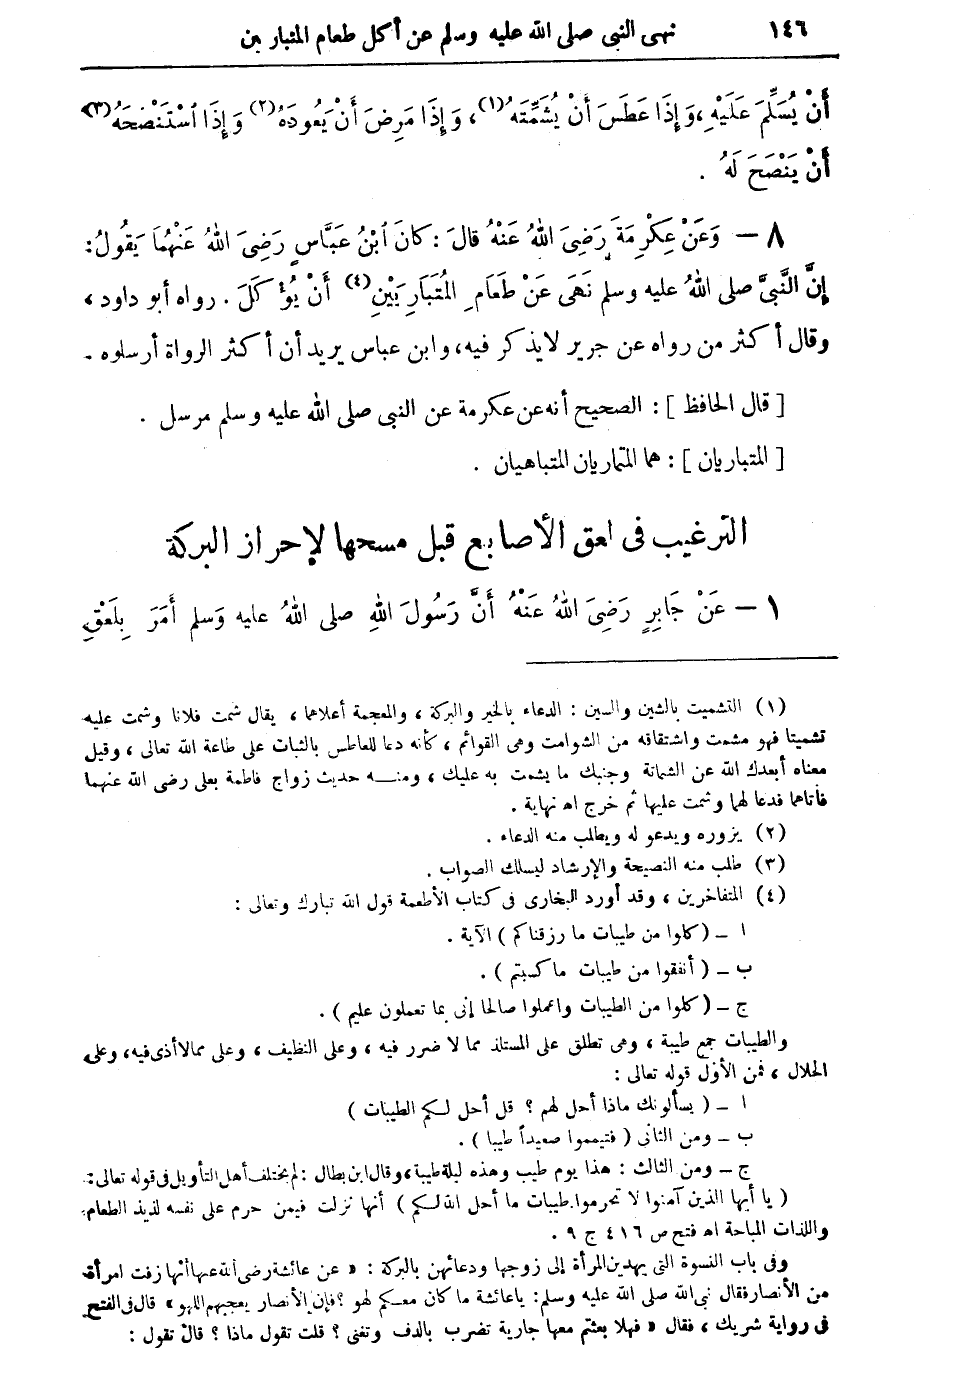 ١٤٦ نهى النبى صلى الله عليه وسلم عن أكل طعام المتبارين
أَنْ يُسَلِّمَ عَلَيْهِ، وَإِذَا عَطَسَ أَنْ يُشَمِّتَهُ(١)، وَإِذَا مَرِضَ أَنْ يَعُودَهُ(٢) وَإِذَا ٱسْتَنْصَحَهُ(٣)
أَنْ يَنْصَحَ لَهُ .
٨ — وَعَنْ عِكْرِمَةَ رَضِىَ اللهُ عَنْهُ قالَ : كانَ ٱبْنُ عَبَّاسٍ رَضِىَ اللهُ عَنْهُمَا يَقُولُ :
إِنَّ النَّبِىَّ صلى اللهُ عليه وسلم نَهَى عَنْ طَعَامِ الْمُتَبَارِيَيْنِ(٤) أَنْ يُؤْكَلَ . رواه أبو داود ،
وقال أكثر من رواه عن جرير لايذكر فيه، وابن عباس يريد أن أكثر الرواة أرسلوه .
[ قال الحافظ ] : الصحيح أنه عن عكرمة عن النبى صلى الله عليه وسلم مرسل .
[ المتباريان ] : هما المتماريان المتباهيان .
الترغيب فى لعق الأصابع قبل مسحها لإحراز البركة
١ — عَنْ جَابِرٍ رَضِىَ اللهُ عَنْهُ أَنَّ رَسُولَ اللهِ صلى اللهُ عليه وَسلم أَمَرَ بِلَعْقِ
(١) التشميت بالشين والسين : الدعاء بالخير والبركة ، والمعجمة أعلاهما ، يقال شمت فلانا وشمت عليه
تشميتا فهو مشمت واشتقاقه من الشوامت وهى القوائم ، كأنه دعا للعاطس بالثبات على طاعة الله تعالى ، وقيل
معناه أبعدك الله عن الشماتة وجنبك ما يشمت به عليك ، ومنه حديث زواج فاطمة بعلى رضى الله عنهما
فأتاهما فدعا لهما وشمت عليها ثم خرج اه نهاية .
(٢) يزوره ويدعو له ويطلب منه الدعاء .
(٣) طلب منه النصيحة والإرشاد ليسلك الصواب .
(٤) المتفاخرين ، وقد أورد البخارى فى كتاب الأطعمة قول الله تبارك وتعالى :
ا — (كلوا من طيبات ما رزقناكم ) الآية .
ب — ( أنفقوا من طيبات ماكسبتم ) .
ج — (كلوا من الطيبات واعملوا صالحا إنى بما تعملون عليم ) .
والطيبات جمع طيبة ، وهى تطلق على المستلذ مما لا ضرر فيه ، وعلى النظيف ، وعلى ممالاأذى فيه، وعلى
الحلال ، فمن الأول قوله تعالى :
ا — ( يسألونك ماذا أحل لهم ؟ قل أحل لكم الطيبات )
ب — ومن الثانى ( فتيمموا صعيداً طيبا ) .
ج — ومن الثالث : هذا يوم طيب وهذه ليلة طيبة، وقال ابن بطال : لم يختلف أهل التأويل فى قوله تعالى :
( يا أيها الذين آمنوا لا تحرموا طيبات ما أحل الله لكم ) أنها نزلت فيمن حرم على نفسه لذيذ الطعام
واللذات المباحة اه فتح ص ٤١٦ ج ٩ .
وفى باب النسوة التى يهدين المرأة إلى زوجها ودعائهن بالبركة : « عن عائشة رضى الله عنها أنها زفت امرأة
من الأنصار فقال نبى الله صلى الله عليه وسلم : ياعائشة ما كان معكم لهو ؟ فإن الأنصار يعجبهم اللهو» قال فى الفتح
فى رواية شريك ، فقال « فهلا بعثتم معها جارية تضرب بالدف وتغنى ؟ قلت تقول ماذا ؟ قال تقول :